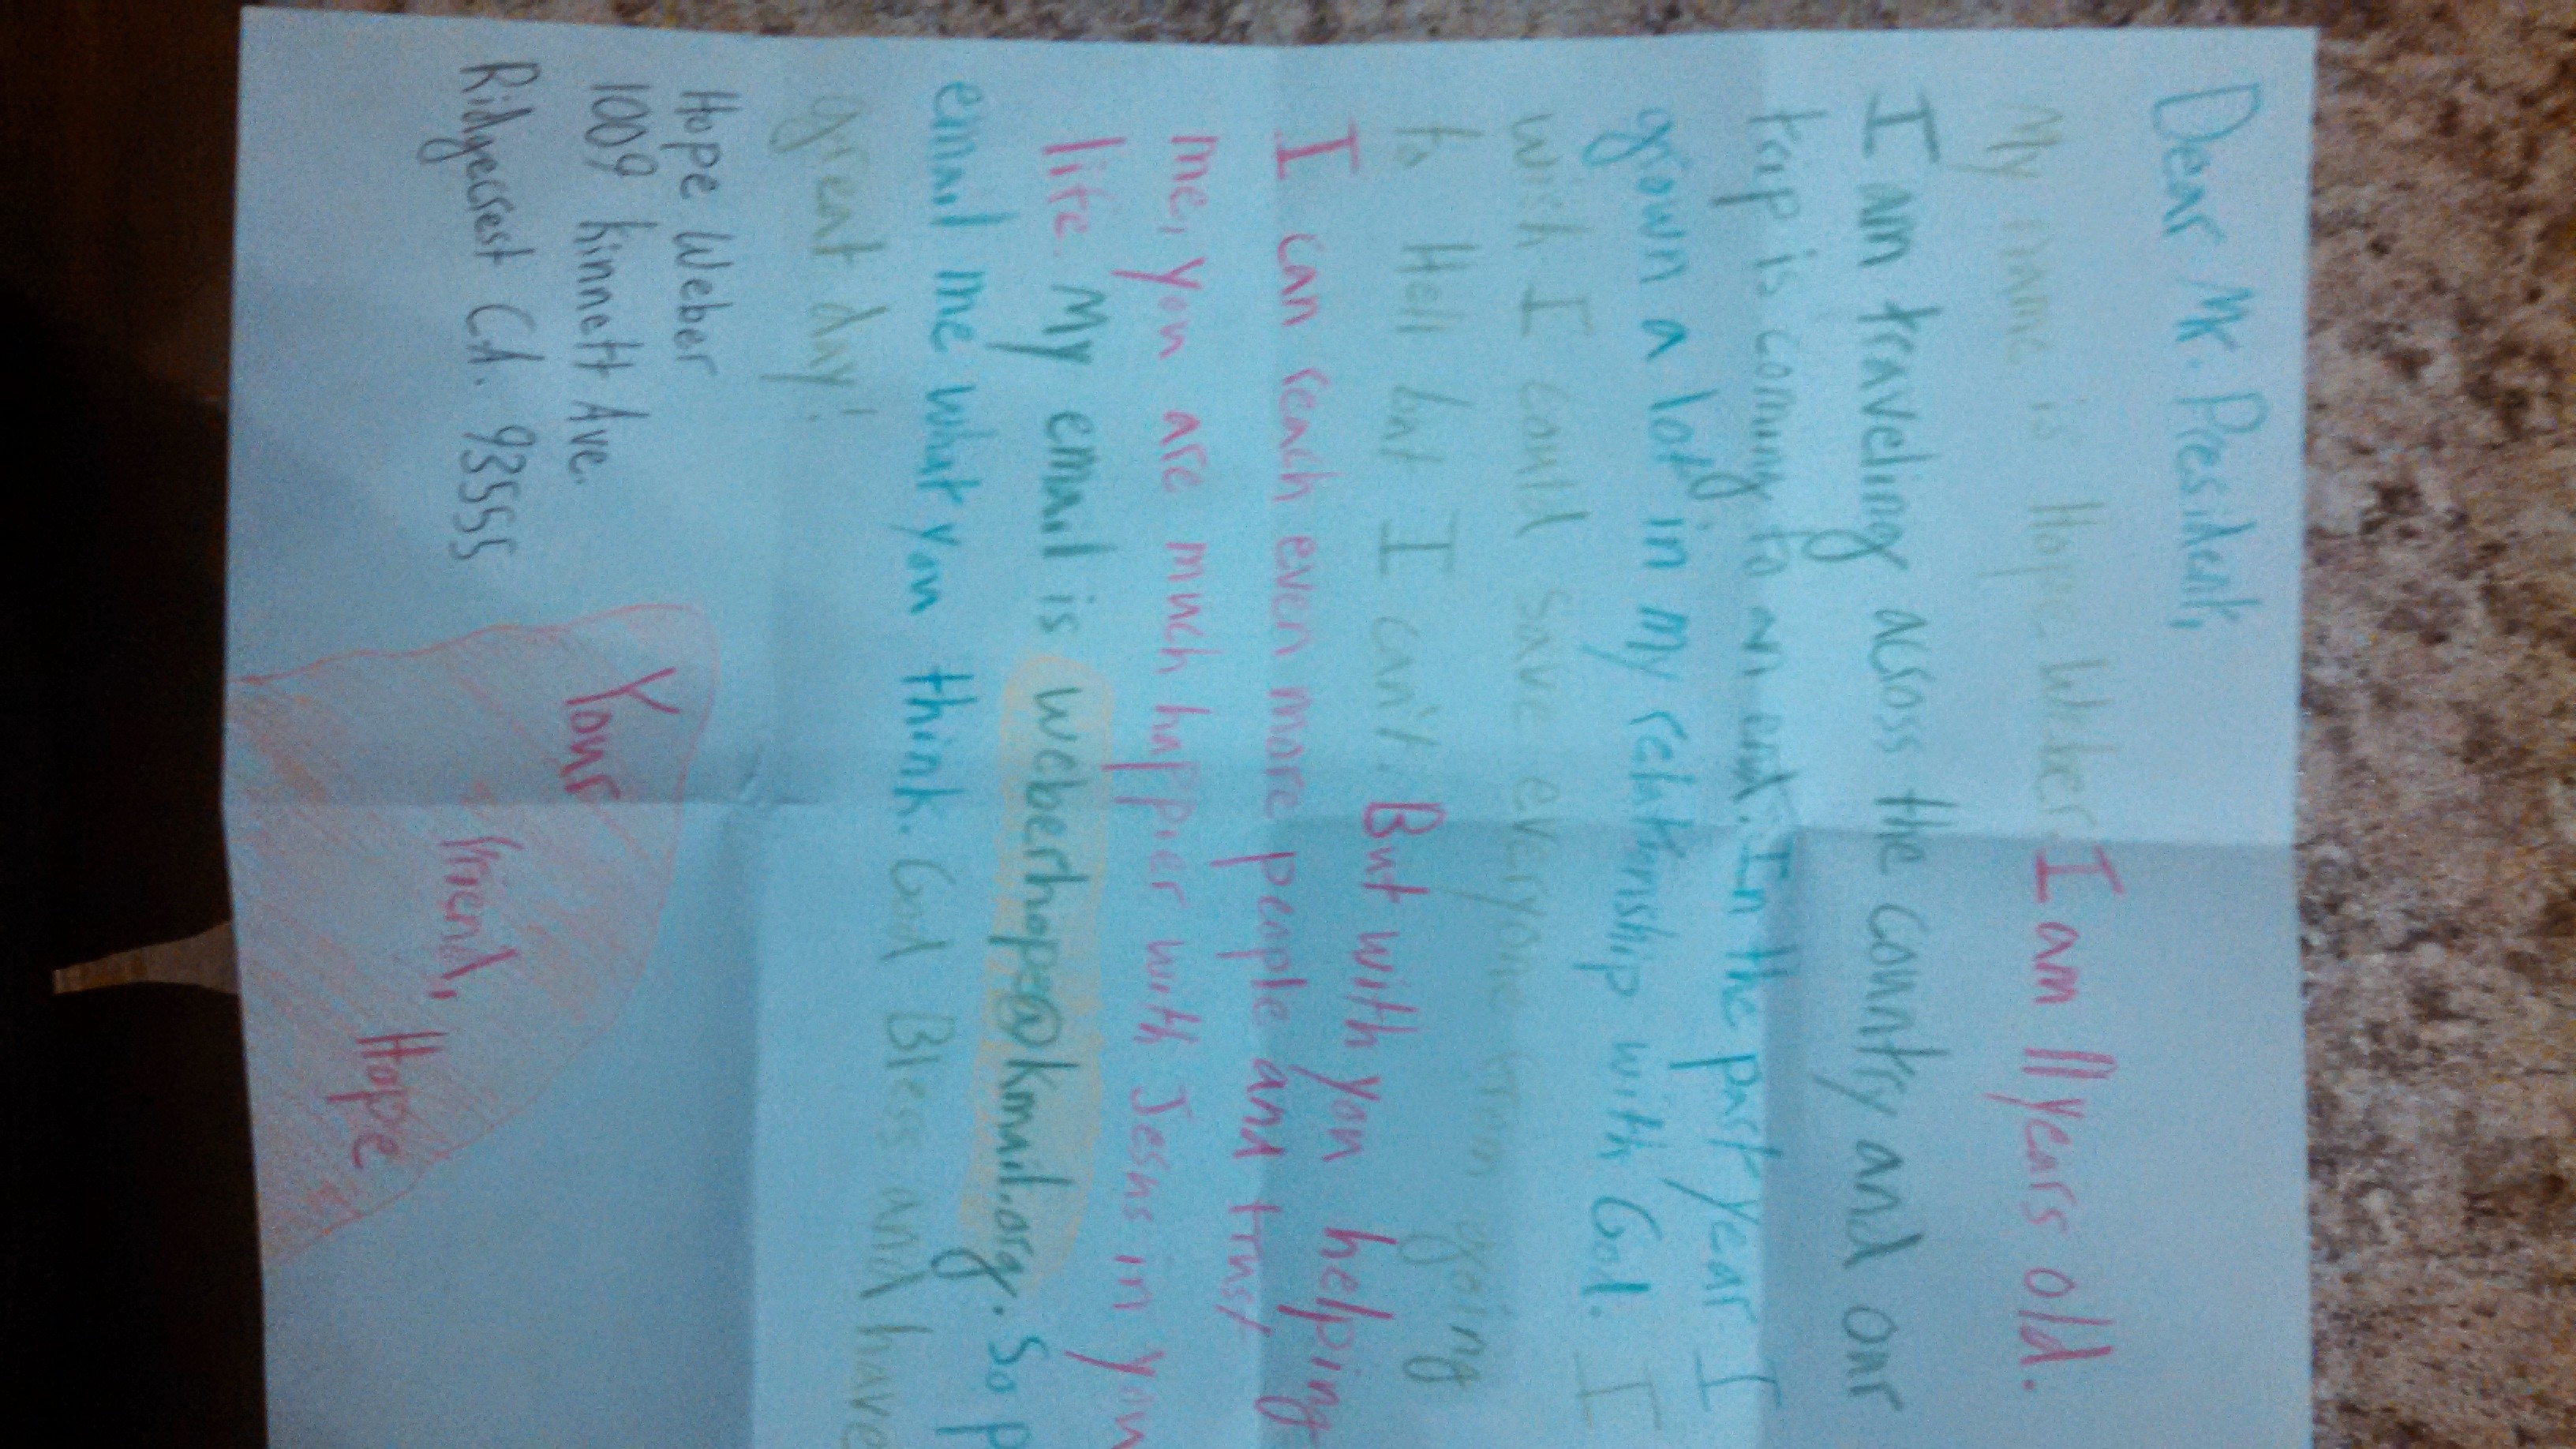 Dear Mr. President,
My name is Hope Weber. I am 11 years old.
I am traveling across the country and our
trip is coming to an end. In the past year I
grown a lot in my relationship with God. I
wish I could save everyone from going
to Hell but I can't. But with you helping
I can reach even more people and trust
me, you are much happier with Jesus in you
life. My email is weberhope@kmail.org. So p
email me what you think. God Bless and have
great day!
Hope Weber
1009 Kinnett Ave.
Ridgecrest CA. 93555
Your
friend,
Hope